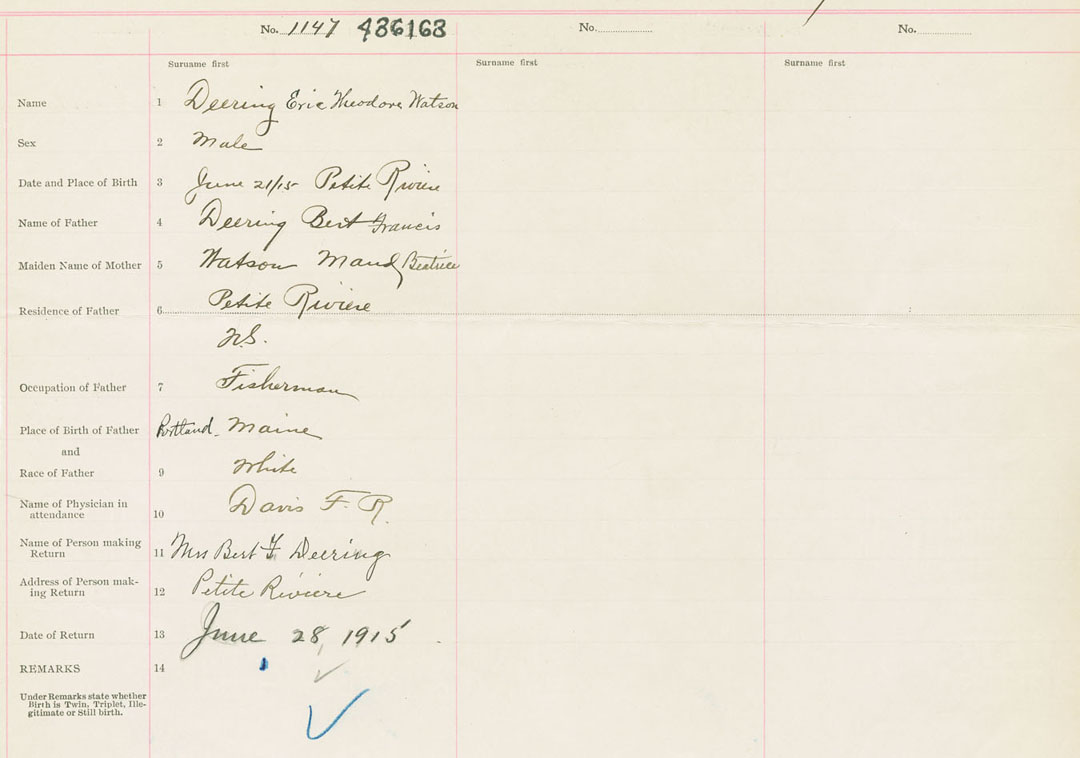 No. 1147 436163
No.
No.
Surname first
Surname first
Surname first
Name 1 Deering Eric Theodore Watson
Sex 2 Male
Date and Place of Birth 3 June 21/15 Petite Riviere
Name of Father 4 Deering Bert Francis
Maiden Name of Mother 5 Watson Maud Beatrice
Residence of Father 6 Petite Riviere
N.S.
Occupation of Father 7 Fisherman
Place of Birth of Father Portland Maine
and
Race of Father 9 White
Name of Physician in
attendance 10 Davis F. R.
Name of Person making
Return 11 Mrs Bert F Deering
Address of Person mak-
ing Return 12 Petite Riviere
Date of Return 13 June 28, 1915
REMARKS 14
Under Remarks state whether
Birth is Twin, Triplet, Ille-
gitimate or Still birth.